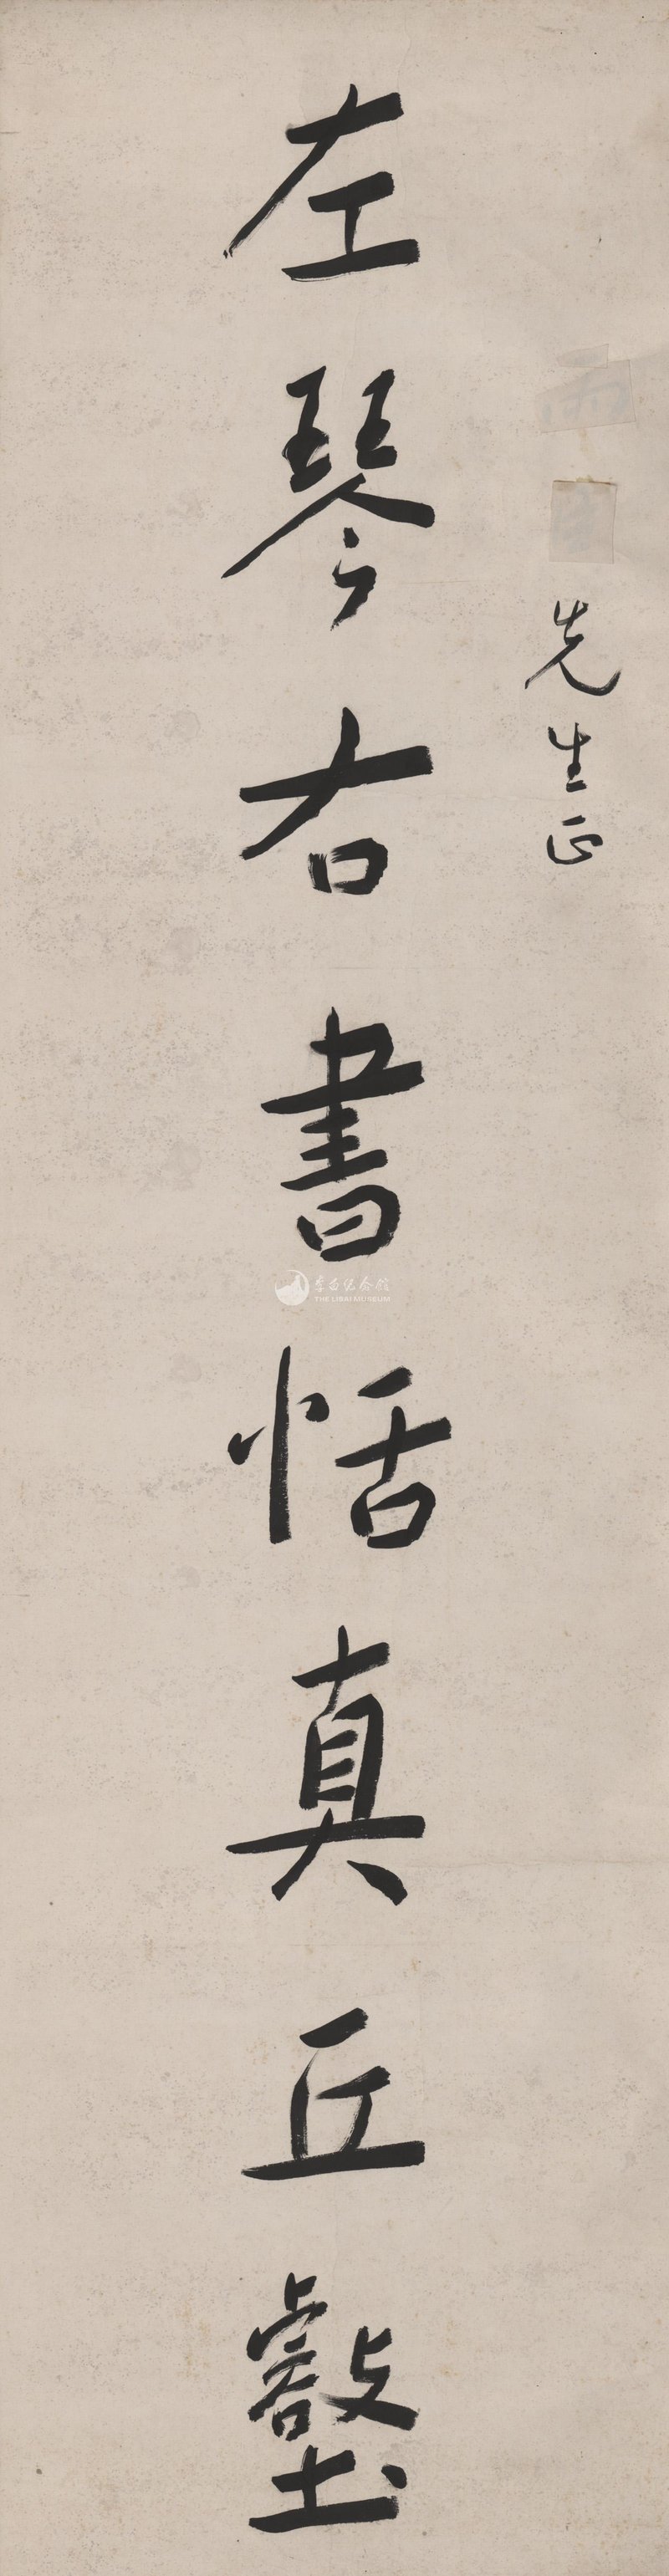 先生正
左琴右書恬真丘壑
李白纪念馆
THE LIBAI MUSEUM